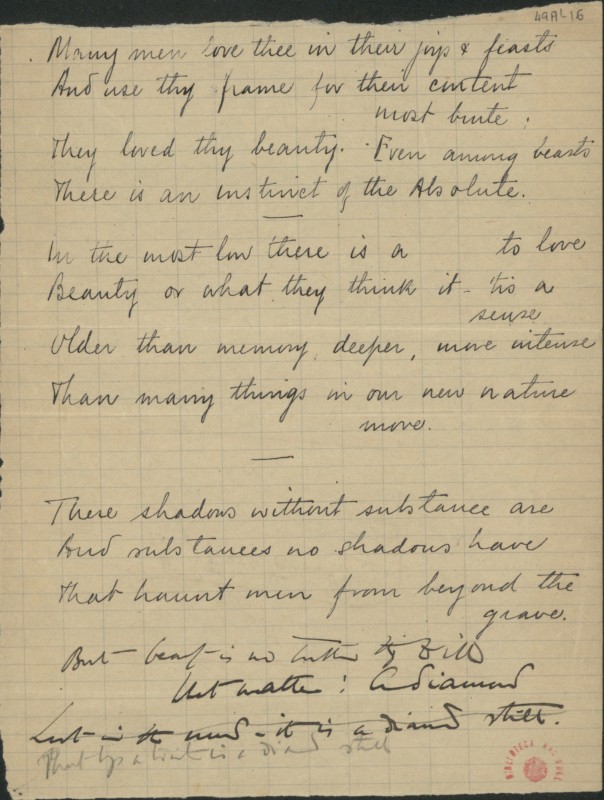 49A1-16
Many men love thee in their joys & feasts
And use thy frame for their content
most brute.
They loved thy beauty. Even among beasts
There is an instinct of the Absolute.
In the most low there is a to love
Beauty or what they think it – 'tis a
sense
Older than memory, deeper, more intense
Than many things in our new nature
move.
There shadows without substance are
And substances no shadows have
That haunt men from beyond the
grave.
But is no
Not matter: A diamond
Lost in the mud – it is a diamond still.
That lies a is a diamond still
BIBLIOTECA NACIONAL